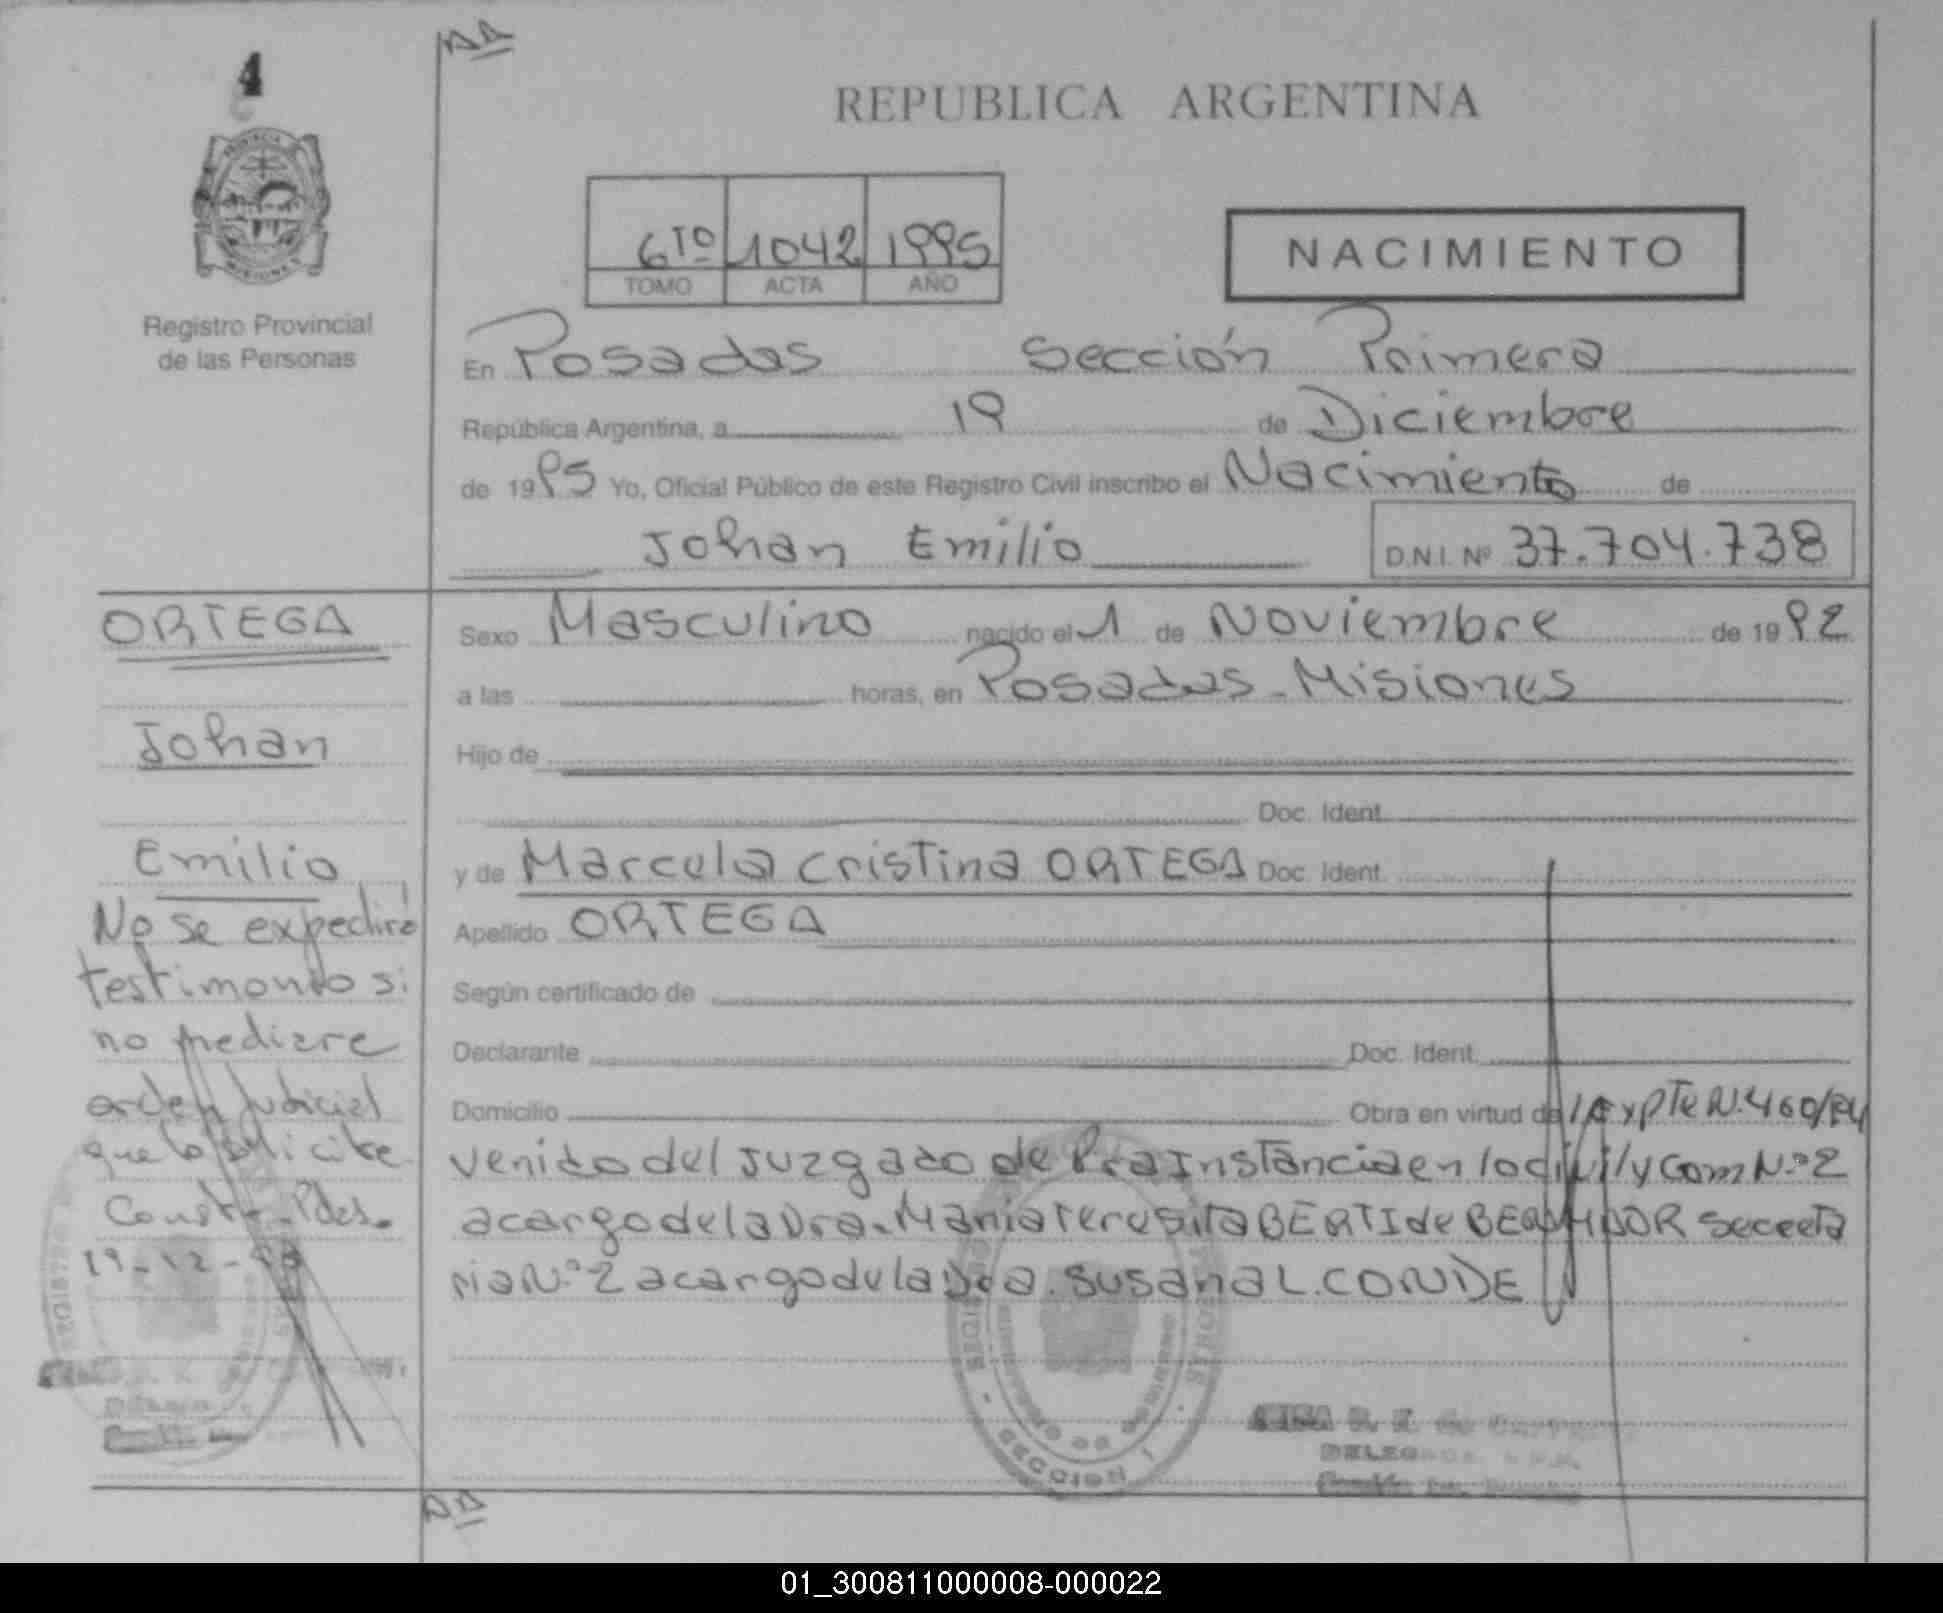 4
AA
REPUBLICA ARGENTINA
PROVINCIA DE
MISIONES
Registro Provincial
de las Personas
6TO 1042 1995
TOMO ACTA AÑO
NACIMIENTO
En Posadas Sección Primera
República Argentina, a 19 de Diciembre
de 1995 Yo, Oficial Público de este Registro Civil inscribo el Nacimiento de
Johan Emilio D.N.I. Nº 37.704.738
ORTEGA
Johan
Emilio
No se expedirá
testimonio si
no mediare
orden Judicial
que lo solicite
Conste. Pdas.
19-12-95
Sexo Masculino nacido el 1 de Noviembre de 1992
a las horas, en Posadas - Misiones
Hijo de
Doc. Ident.
y de Marcela Cristina ORTEGA Doc. Ident.
Apellido ORTEGA
Según certificado de
Declarante Doc. Ident.
Domicilio Obra en virtud de Expte N.460/94
venido del Juzgado de Pra Instancia en lo civil y Com N.º 2
a cargo de la Dra. Maria Teresita BERTI de Secreta
ria N.º 2 a cargo de la Dra. Susana L. CONDE
SECCION 1
AA
01_300811000008-000022